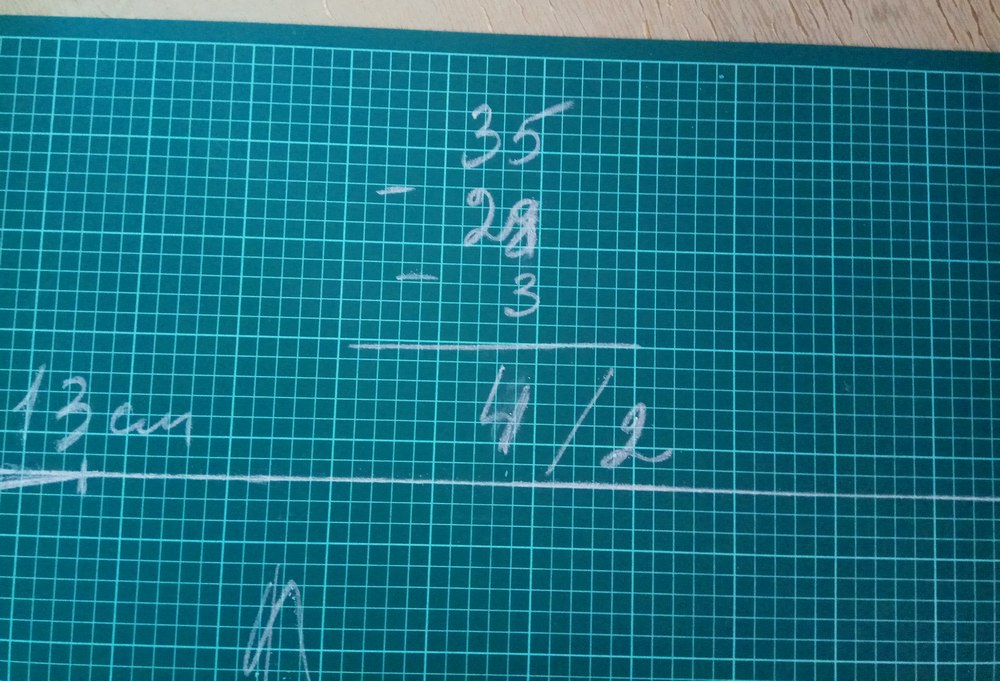 35
-
28
- 3
4 / 2
13 см